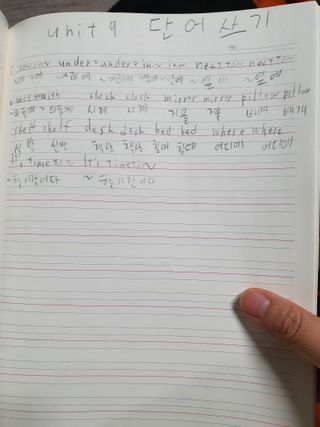 unit 9 단어 쓰기
under~ under~ in~ in~ next to~ next to~
~아래에 ~안에 ~안에 ~옆에 ~옆에
with clock clock mirror mirror pillow pillow
~와 함께 ~와 함께 시계 시계 거울 거울 베개 베개
shelf shelf desk desk bed bed where where
선반 선반 책상 책상 침대 침대 어디에 어디에
It's time to~ It's time to~
~할 시간이다 ~할 시간이다